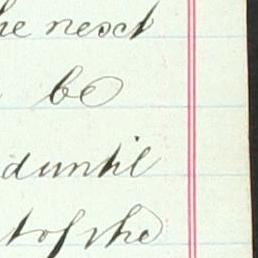 he next
be
d until
t of the